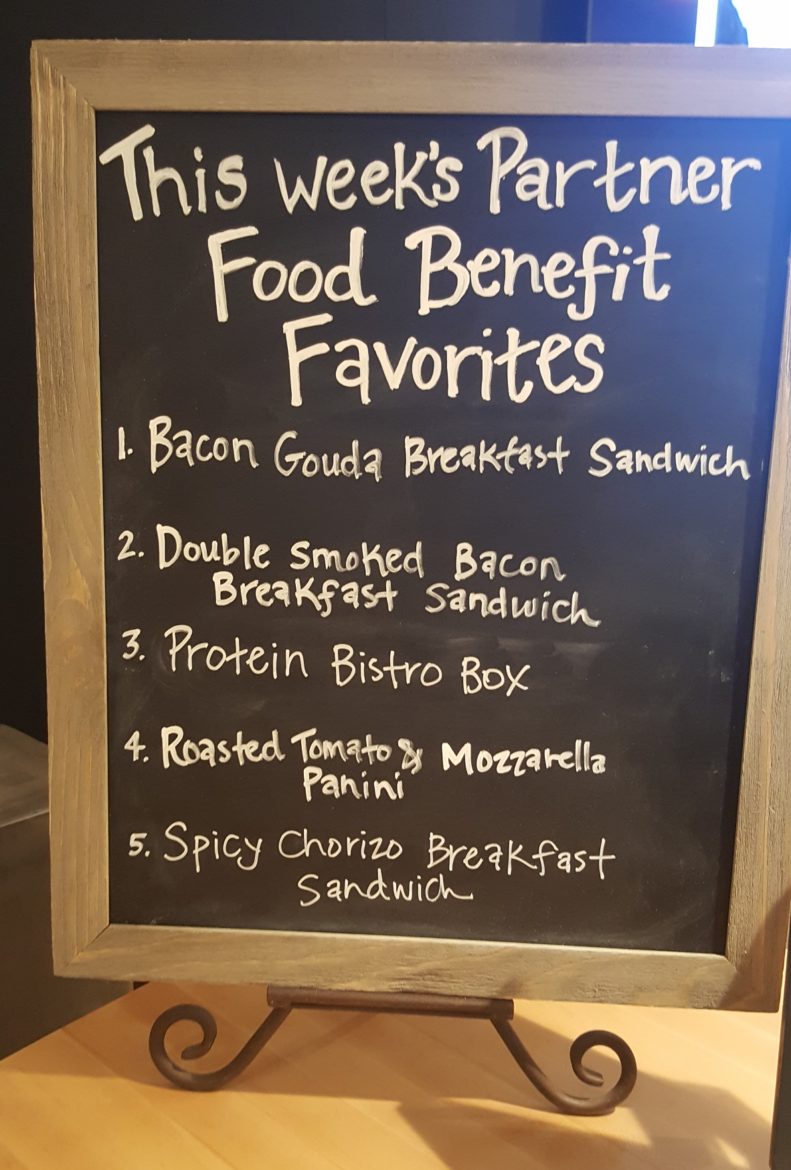 This week's Partner
Food Benefit
Favorites
1. Bacon Gouda Breakfast Sandwich
2. Double Smoked Bacon
Breakfast Sandwich
3. Protein Bistro Box
4. Roasted Tomato & Mozzarella
Panini
5. Spicy Chorizo Breakfast
Sandwich